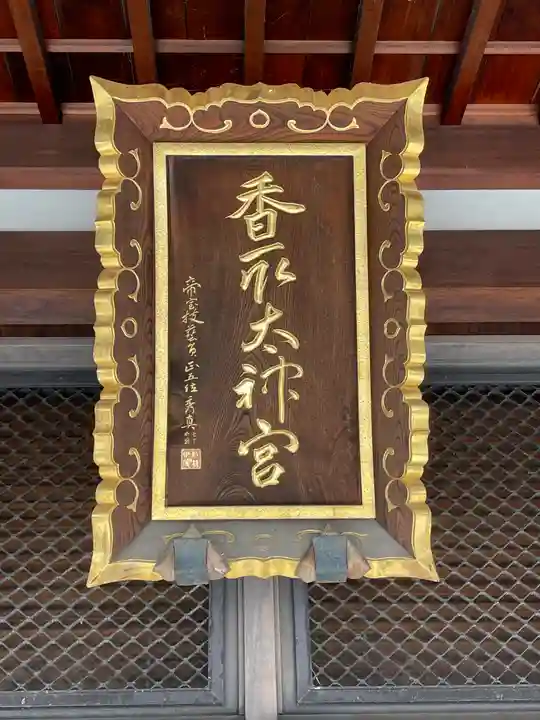 香取太神宮
帝室技藝員正五位秀真